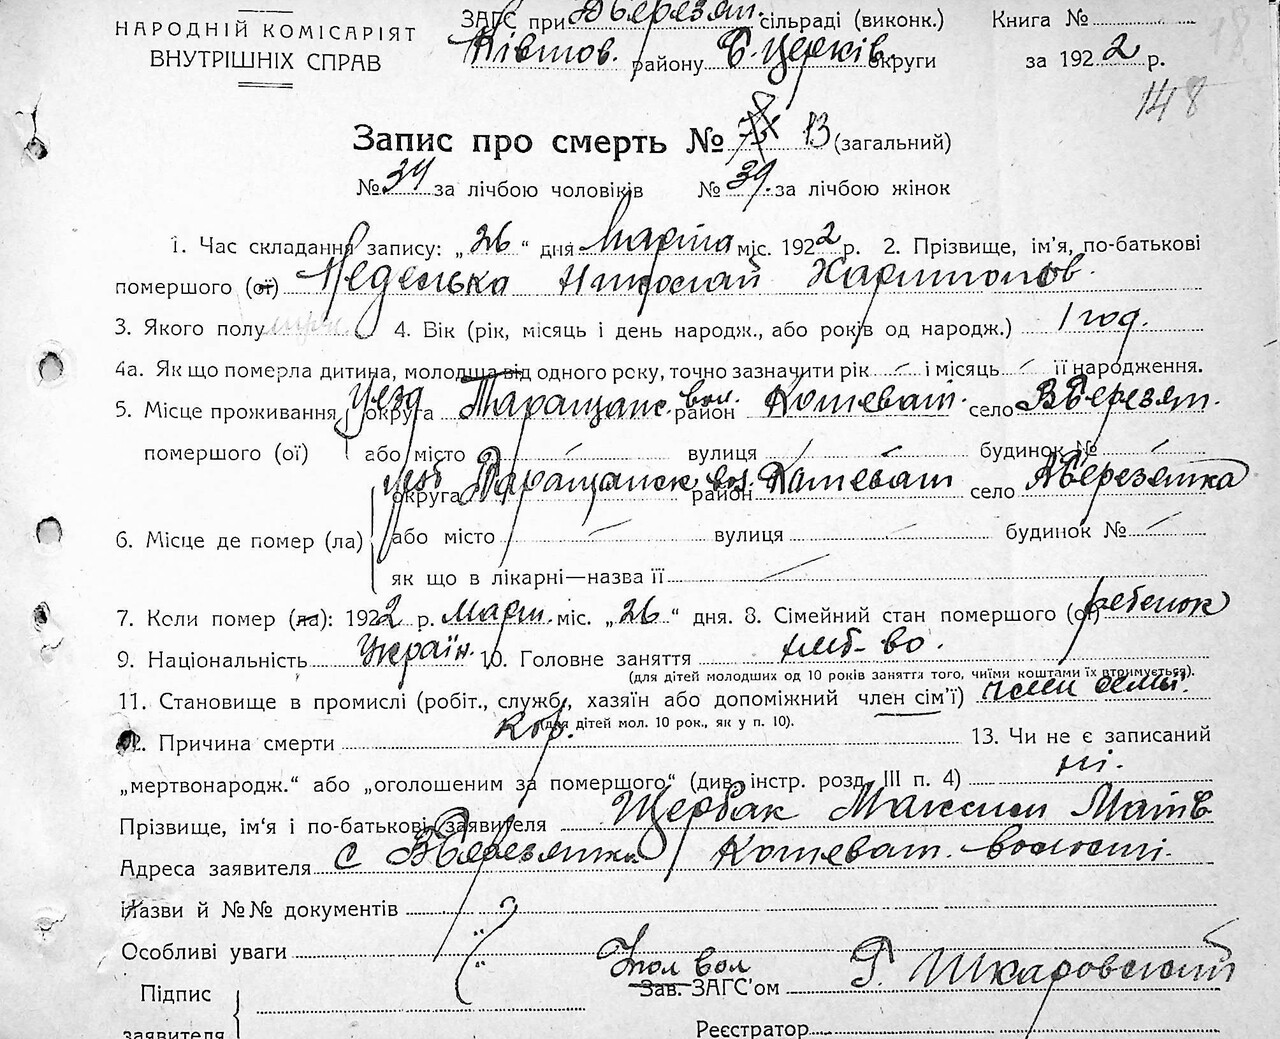 НАРОДНІЙ КОМІСАРІЯТ
ВНУТРІШНІХ СПРАВ
ЗАГС при В Березят. сільраді (виконк.)
району Б. Церків. округи
Книга №
за 1922 р.
148
Запис про смерть № 13 (загальний)
№ 39 за лічбою чоловіків № 39. за лічбою жінок
1. Час складання запису: „26“ дня Марта міс. 1922 р. 2. Прізвище, ім'я, по-батькові
помершого (ої) Неделько Николай Харитонов.
3. Якого полу 4. Вік (рік, місяць і день народж., або років од народж.) 1 год.
4а. Як що померла дитина, молодша від одного року, точно зазначити рік і місяць її народження.
5. Місце проживання уезд округа Таращанс. вол. район Кошеват. село В Березят.
помершого (ої) або місто вулиця будинок №
округа Таращанск вол. район Кошеват село В Березянка
6. Місце де помер (ла) або місто вулиця будинок №
як що в лікарні—назва її
7. Коли помер (ла): 1922 р. Март. міс. „26“ дня. 8. Сімейний стан помершого (ої) ребенок
9. Національність Україн. 10. Головне заняття хліб-во.
(для дітей молодших од 10 років заняття того, чиїми коштами їх втримується).
11. Становище в промислі (робіт., служб., хазяїн або допоміжний член сім'ї) член семьи.
(для дітей мол. 10 рок., як у п. 10).
12. Причина смерти кор. 13. Чи не є записаний
„мертвонародж.“ або „оголошеним за помершого“ (див. інстр. розд. III п. 4) ні.
Прізвище, ім‘я і по-батькові заявителя Щербак Максим Матв
Адреса заявителя с В Березянка Кошеват. волости.
Назви й №№ документів
Особливі уваги
Підпис
заявителя
вол
Зав. ЗАГС'ом Г. Шкаровский
Реєстратор